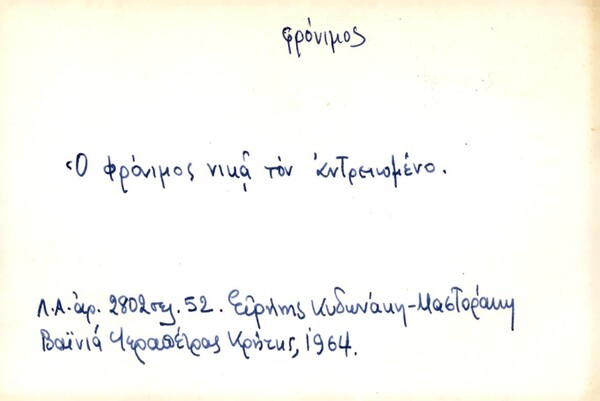 φρόνιμος
Ὁ φρόνιμος νικᾷ τὸν ἀντρειωμένο.
Λ.Α. ἀρ. 2802 σελ. 52. Εἰρήνης Κυδωνάκη-Μαστοράκη
Βαϊνιά Ἱεραπέτρας Κρήτης, 1964.